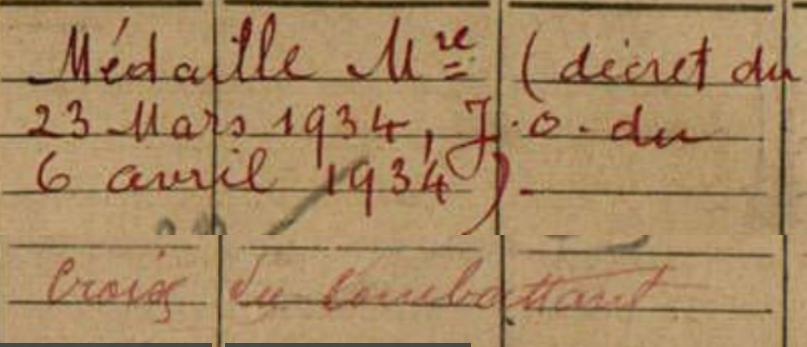 Médaille Mre (décret du
23 Mars 1934, J.O. du
6 avril 1934).
Croix du Combattant